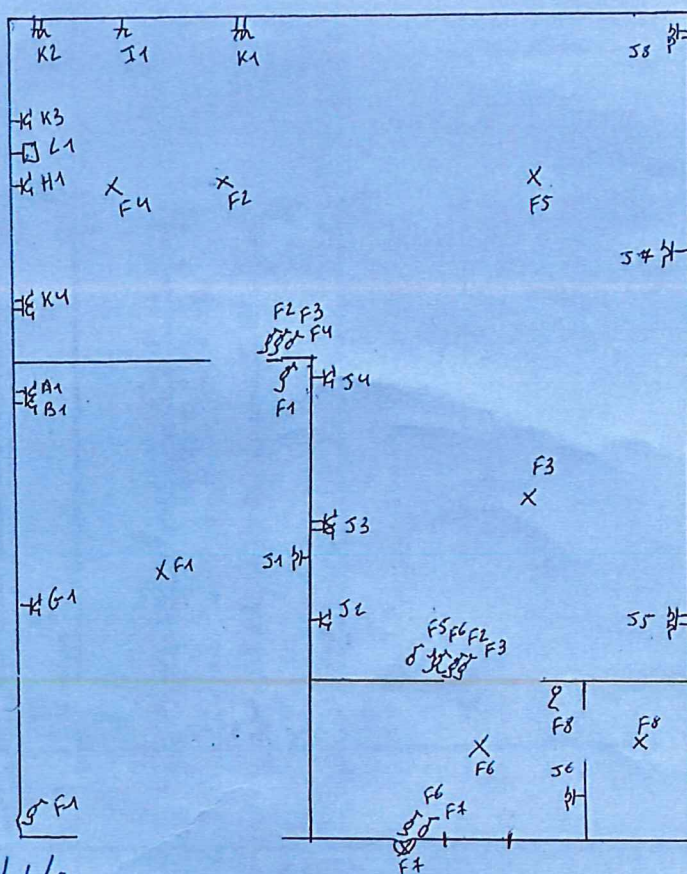 K2 I1 K1 J8
K3
L1
H1
F4 F2 F5
J7
K4
F2 F3
F4
A1
B1
F1
J4
F3
J3
J1
F1
G1
J2
J5
F5 F6 F2
F3
F8 F8
F6
J6
F1
F6
F7
F7